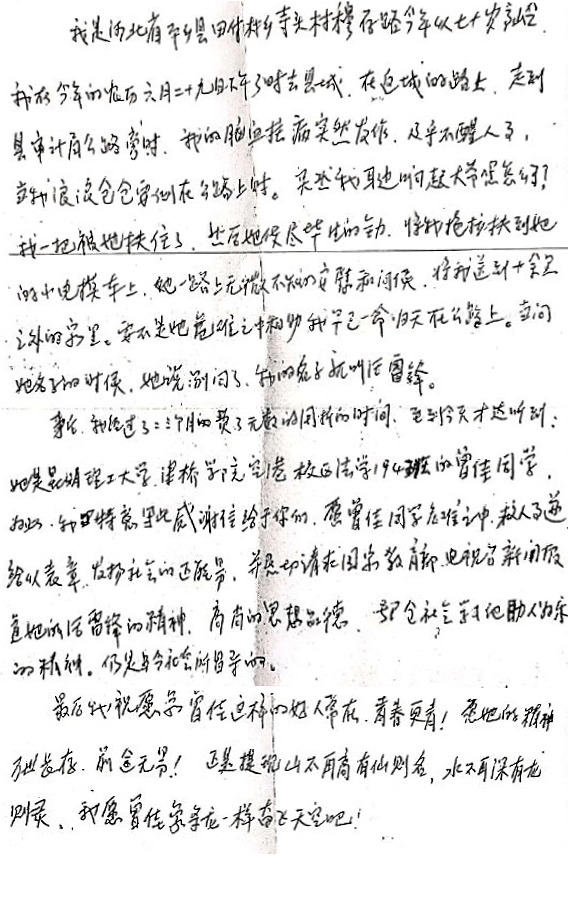 我是河北省平乡县田付村乡寺头村穆存路今年以七十岁高龄.
我于今年的农历六月二十九日下午3时去县城.在返城的路上.走到
县审计局公路旁时.我的脑血拴病突然发作.及乎不醒人了.
当我浪浪仓仓要倒在公路上时。突然我耳边响起大爷您怎么了?
我一把被她扶住了.然后她使尽毕生的力.将我抱拉扶到她
的小电摸车上.她一路上无微不知的安慰和问侯.将我送到十余里
之外的家里。要不是她危难之中相助我早已一命归天在公路上。当问
她名子的时候.她说别问了.我的名子就叫活雷锋。
事后.我经过了二三个月的费了无数的周折的时间.至到今天才达听到:
她是昆明理工大学.津桥学院空港校区法学194班的曾佳同学.
为此.我特意写此感谢信给于你们.愿曾佳同学危难之中.救人事迹
给以表章.发扬社会的正能号.并恳切请求国家教育部.电视台新闻报
道她的活雷锋的精神.高尚的思想品德. 全社会 他助人为乐
的精神。仍是当今社会所昌导的。
最后我祝愿 曾佳这样的好人常在.青春更青!愿她的精神
万世长存.前途无号!正是提现山不再高有仙则名,水不再深有龙
则灵.我愿曾佳象条龙一样奋飞天空吧!